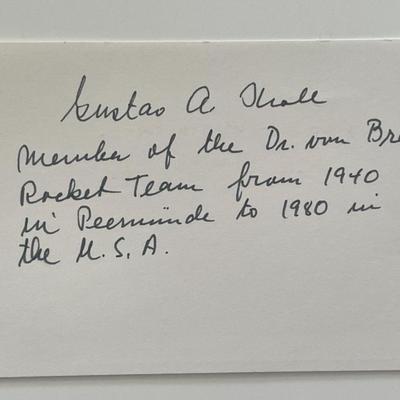 Gustav A Kroll
Member of the Dr. von Bra
Rocket Team from 1940
in Peenünde to 1980 in
the U.S.A.